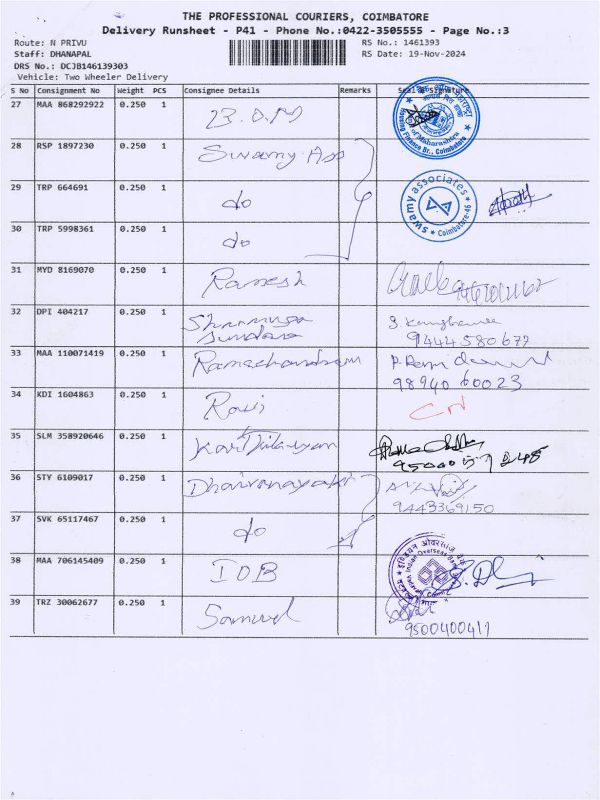 THE PROFESSIONAL COURIERS, COIMBATORE
Delivery Runsheet - P41 - Phone No.:0422-3505555 - Page No.:3
Route: N PRIVU RS No.: 1461393
Staff: DHANAPAL RS Date: 19-Nov-2024
DRS No.: DCJB146139303
Vehicle: Two Wheeler Delivery
S No Consignment No Weight PCS Consignee Details Remarks Seal & Signature
27 MAA 868292922 0.250 1
of Maharashtra
Housing Finance Br., Coimbatore
28 RSP 1897230 0.250 1 Swamy Aso
29 TRP 664691 0.250 1 do
swamy associates
Coimbatore-46
30 TRP 5998361 0.250 1 do
31 MYD 8169070 0.250 1 Ramesh
32 DPI 404217 0.250 1 Shanmuga
Sundara
9444580677
33 MAA 110071419 0.250 1 Ramachandran
98940 60023
34 KDI 1604863 0.250 1 Ravi
35 SLM 358920646 0.250 1
36 STY 6109017 0.250 1
9443369150
37 SVK 65117467 0.250 1 do
38 MAA 706145409 0.250 1 IOB
Indian Overseas Bank
39 TRZ 30062677 0.250 1 Samuel